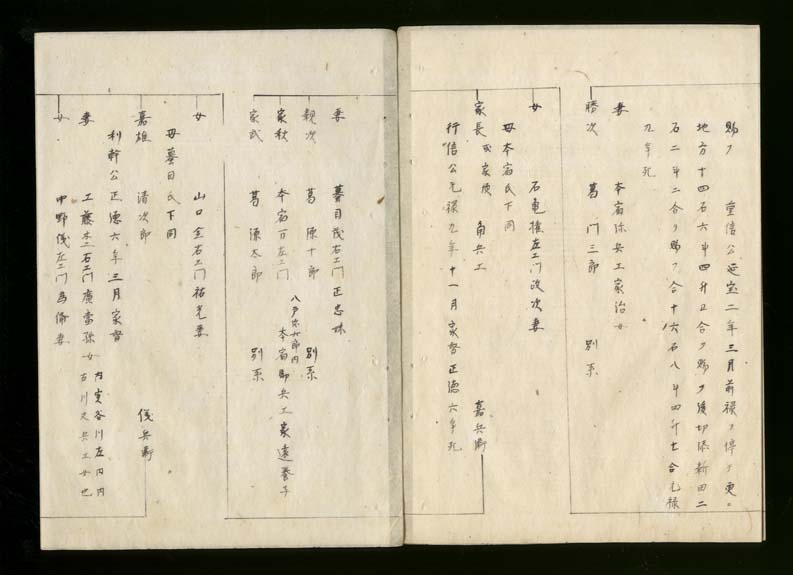 賜フ 重信公延宝二年三月前禄ヲ停テ更ニ
地方十四石六斗四升五合ヲ賜フ後切添新田二
石二斗二合ヲ賜フ合十六石八斗四升七合元禄
九年死
妻 本宿弥兵エ家治女
勝次 葛 門三郎 別系
女 石亀権左エ門政次妻
母本宿氏下同
家長 或家度 角兵エ 嘉兵衛
行信公元禄九年十一月家督正徳六年死
妻 蟇目茂右エ門正忠妹
親次 葛 源十郎 別系
家秋 本宿万左エ門 本宿即兵エ家遠養子
家武 葛 源太郎 別系
女 山口金右エ門祐光妻
母蟇目氏下同
嘉雄 清次郎 儀兵衛
利幹公正徳六年三月家督
妻 工藤杢右エ門廣當孫女
女 中野儀左エ門妻